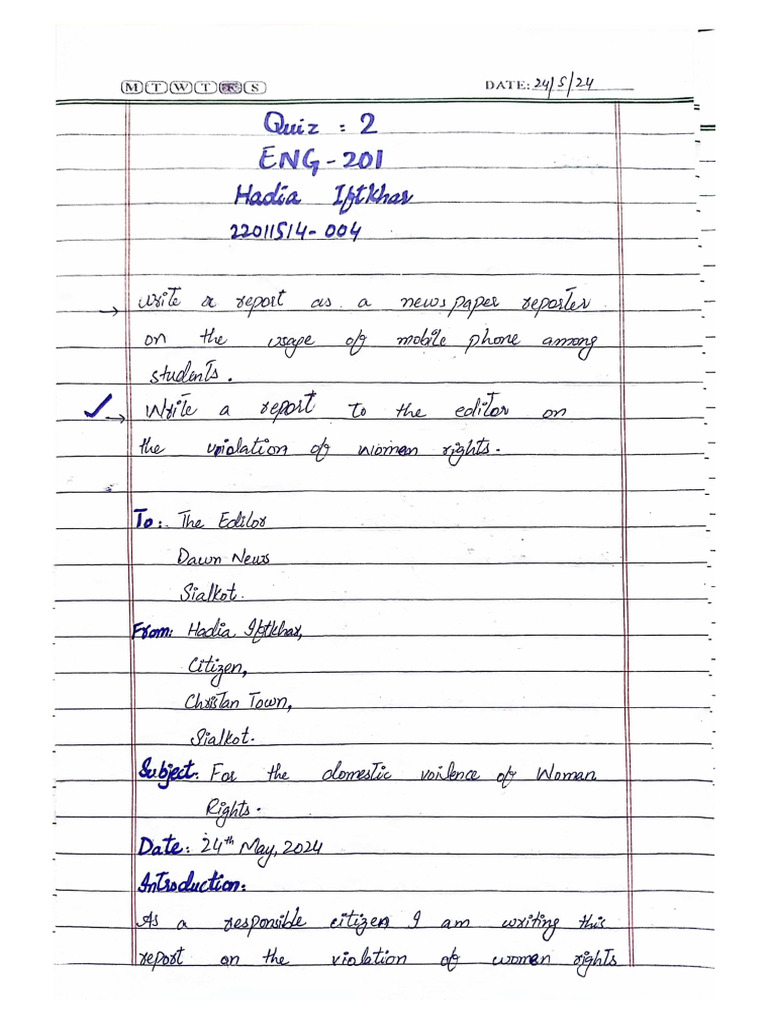 M T W T F S
DATE: 24/5/24
Quiz : 2
ENG-201
Hadia Iftkhar
22011514-004
→ Write a report as a newspaper reporter
on the usage of mobile phone among
students.
✓ → Write a report to the editor on
the violation of women rights.
To: The Editor
Dawn News
Sialkot.
From: Hadia Iftkhar,
Citizen,
Christan Town,
Sialkot.
Subject: For the domestic voilence of Woman
Rights.
Date: 24th May, 2024
Introduction:
As a responsible citizen I am writing this
report on the violation of women rights